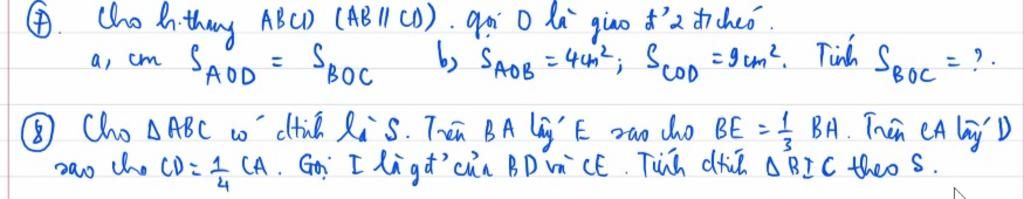 ⑦. Cho h.thang ABCD (AB // CD). gọi O là giao đ' 2 đ/chéo.
a, cm S_AOD = S_BOC b, S_AOB = 4cm²; S_COD = 9cm². Tính S_BOC = ?.
⑧ Cho ΔABC có dtích là S. Trên BA lấy E sao cho BE = 1/3 BA. Trên CA lấy D
sao cho CD = 1/4 CA. Gọi I là gđ' của BD và CE. Tính dtích ΔBIC theo S.